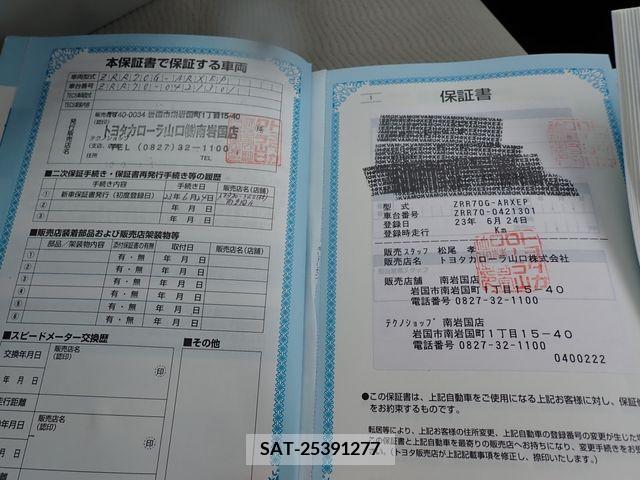 本保証書で保証する車両
車両型式 ZRR70G-ARXEP
車台番号 ZRR70-0421301
〒740-0034 岩国市南岩国町1丁目15-40
トヨタカローラ山口㈱南岩国店
TEL (0827)32-1100
住所 TEL
■二次保証手続き・保証書再発行手続き等の履歴
手続き内容 手続き日 販売店名(店舗)
① 新車保証書発行(初度登録日) 23年6月24日
② 年 月 日
③ 年 月 日
■販売店装着部品および販売店架装物等
部品/架装物内容 添付保証書の有無 取付日 販売店名(店舗)
① 有・無 年 月 日
② 有・無 年 月 日
③ 有・無 年 月 日
④ 有・無 年 月 日
⑤ 有・無 年 月 日
⑥ 有・無 年 月 日
■スピードメーター交換歴
■その他
交換年月日 販売店名 (認印)
年 月 日 印
走行距離
販売店名 (認印)
年 月 日 印
1
保証書
型式 ZRR70G-ARXEP
車台番号 ZRR70-0421301
登録日 23年 6月 24日
登録時走行 Km
販売スタッフ 松尾 孝
販売店名 トヨタカローラ山口株式会社
販売店舗 南岩国店
岩国市南岩国町1丁目15-40
電話番号 0827-32-1100
テクノショップ 南岩国店
岩国市南岩国町1丁目15-40
電話番号 0827-32-1100
0400222
●この保証書は、上記自動車をご使用になる上記お客様に対し、保証
をお約束するものです。
転居等により、上記お客様の住所変更、上記自動車の登録番号の変更が生じた
この保証書と上記自動車を最寄りの販売店へお持ちになり、変更手続きをお
い。(トヨタ販売店が上記記載事項を修正し、捺印いたします。)
SAT-25391277